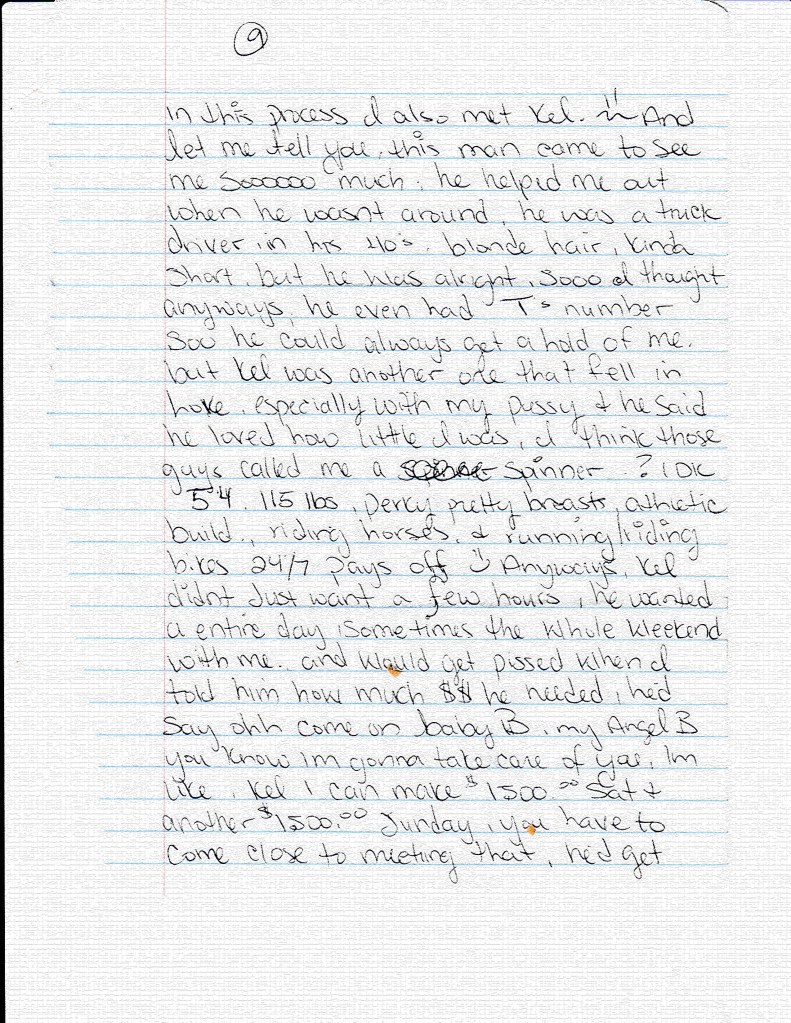 9
in this process I also met Kel. And
let me tell you, this man came to see
me Soooooo much, he helped me out
when he wasnt around, he was a truck
driver, in his 40's, blonde hair, kinda
short, but he was alright, Sooo I thought
anyways, he even had T's number
Soo he could always get a hold of me.
but Kel was another one that fell in
love, especially with my pussy & he said
he loved how little I was, I think those
guys called me a spinner ? IDK
5'4, 115 lbs, perky pretty breasts, athletic
build, riding horses, & running/riding
bikes 24/7 pays off Anyways, Kel
didnt Just want a few hours, he wanted
a entire day, sometimes the whole weekend
with me. and would get pissed when I
told him how much $$ he needed, he'd
say ohh come on baby B, my Angel B
you know im gonna take care of you, Im
like, Kel I can make $1500.00 Sat &
another $1500.00 Sunday, you have to
come close to meeting that, he'd get